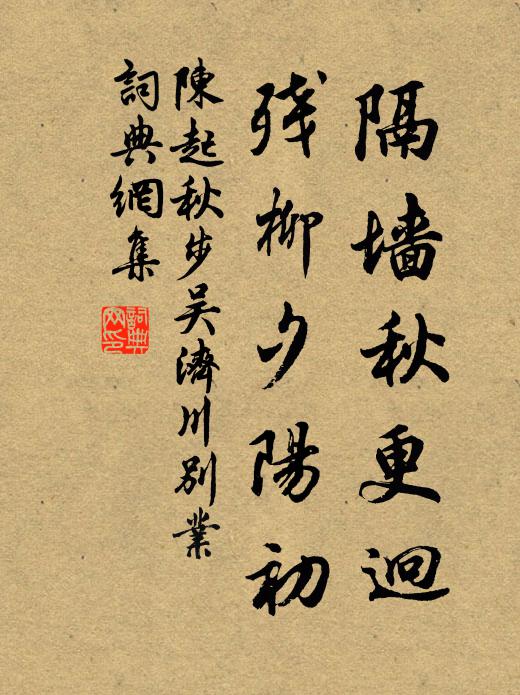 隔墙秋更迥
残柳夕陽初
陳起秋步吴濟川别業
詞典網集
詞典网印